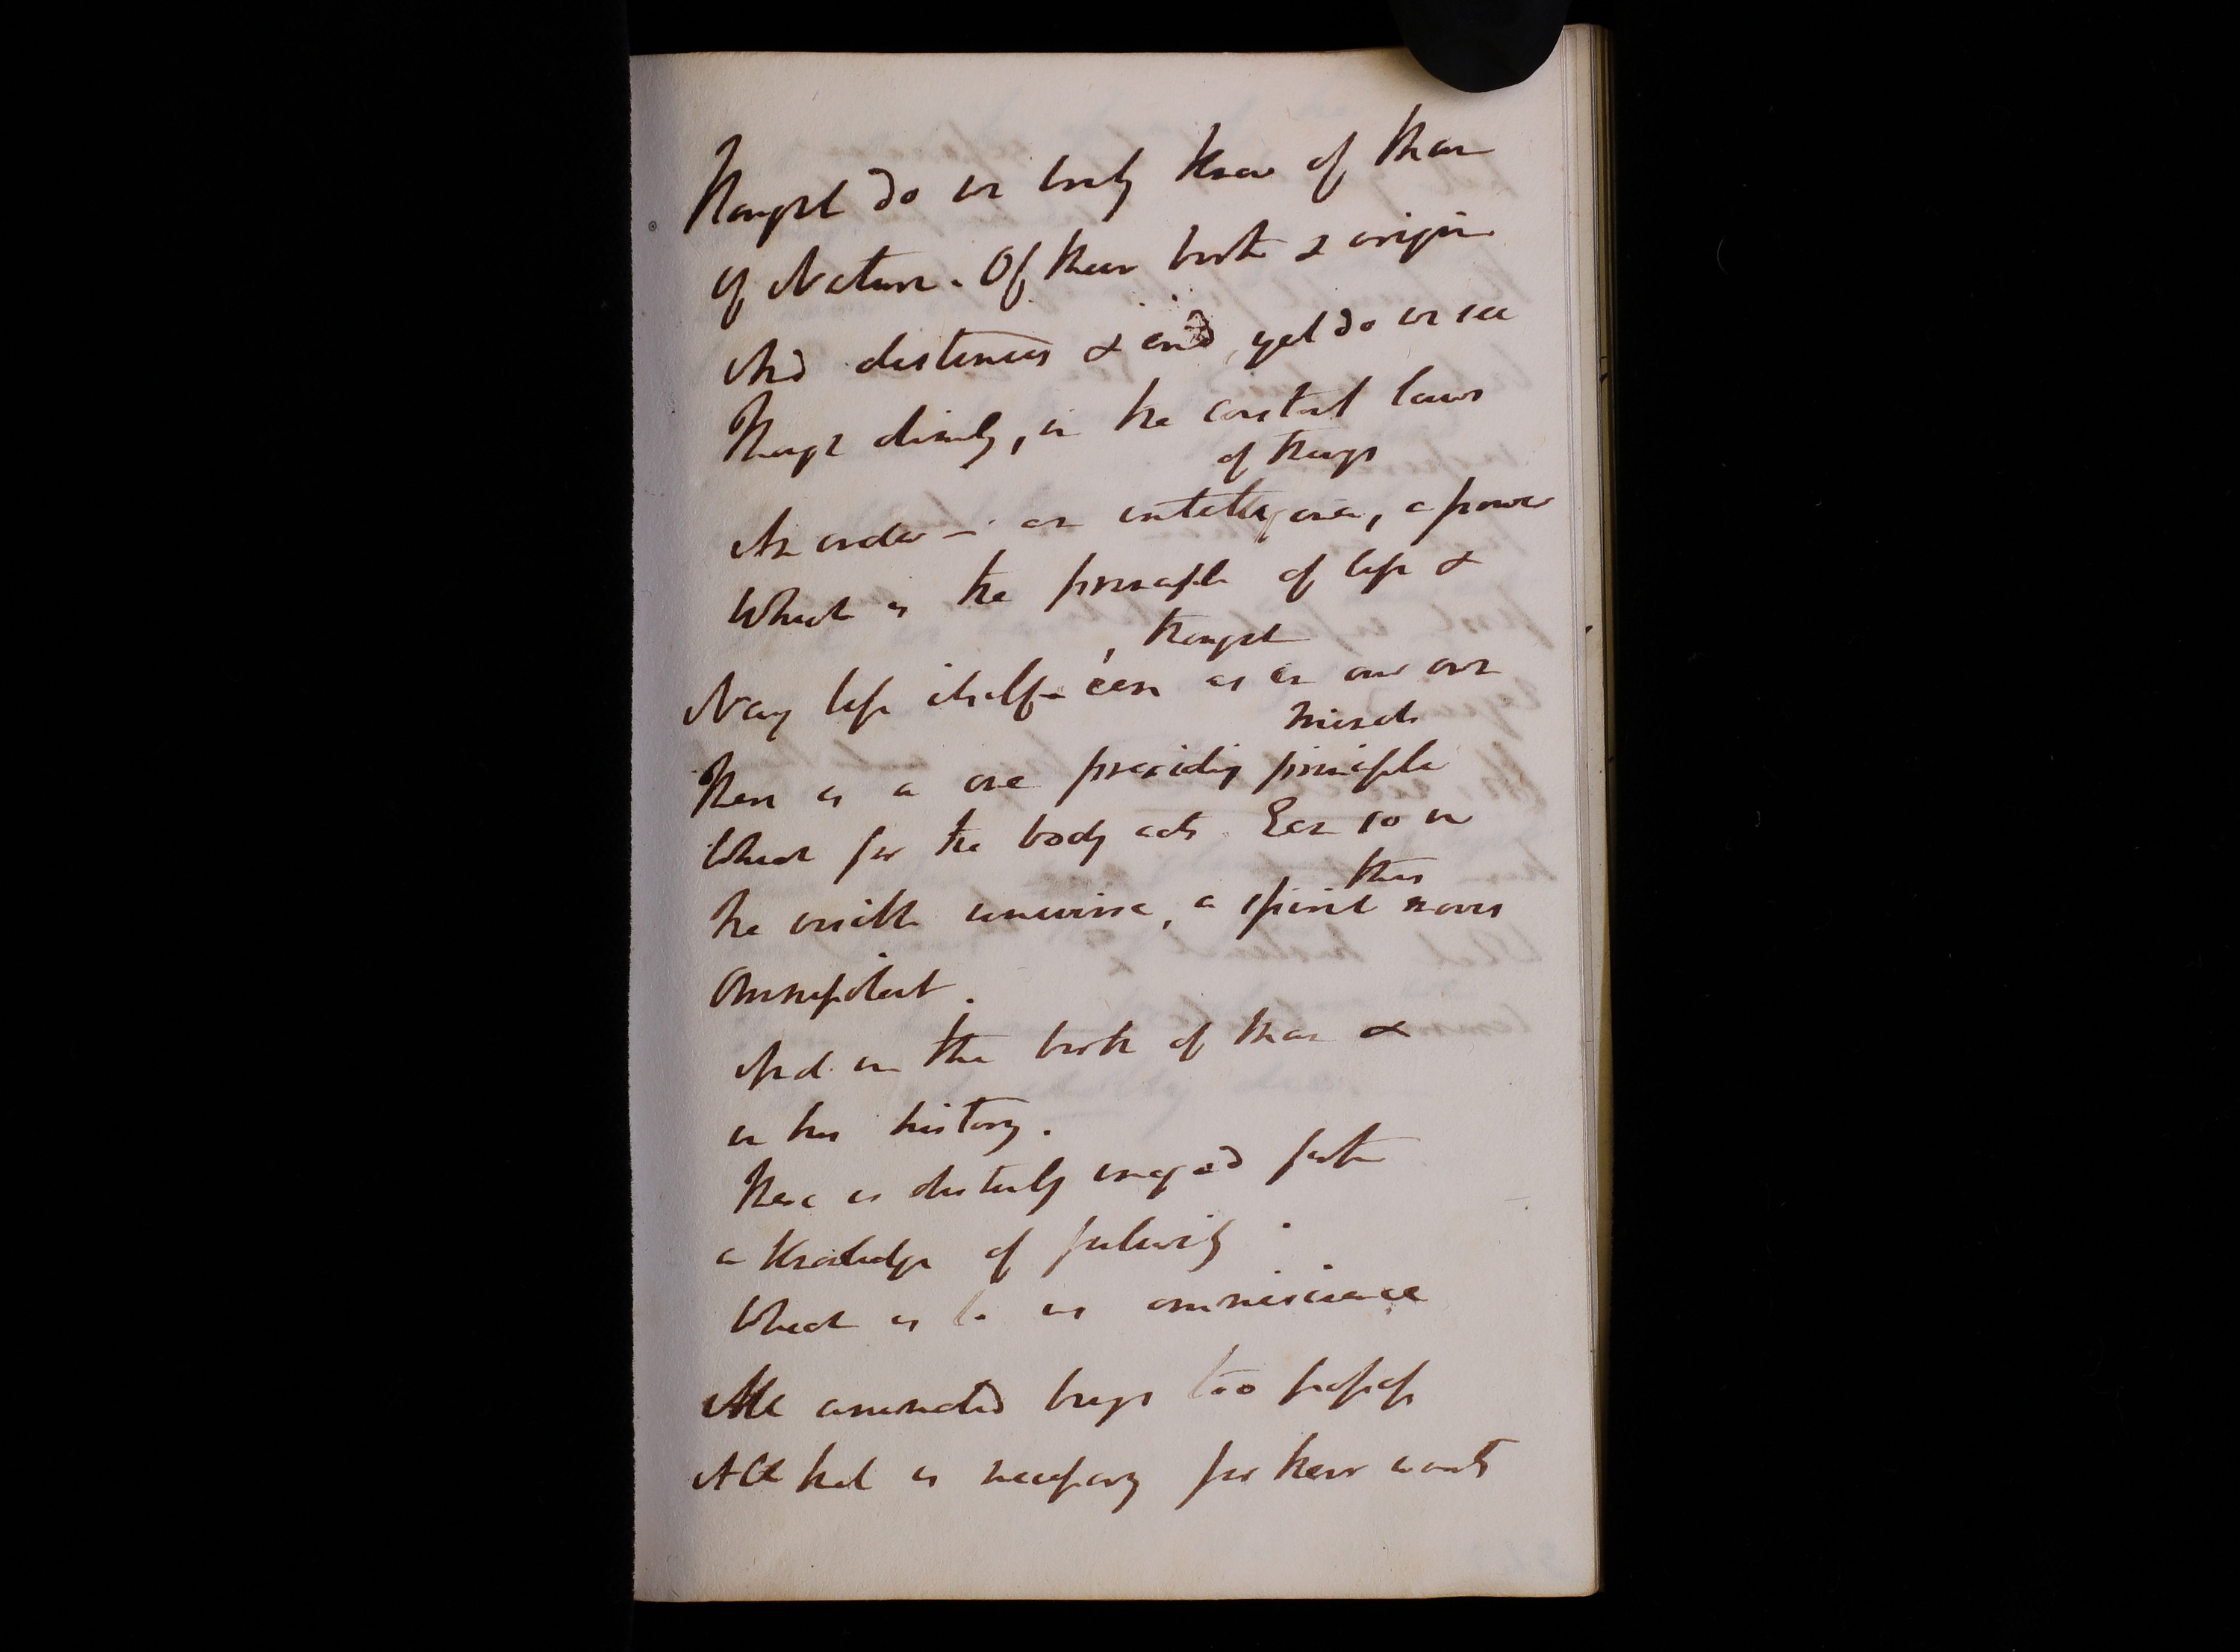 Naught do we truly know of Man
Of Nature. Of their birth & origin
And destinies & end, yet do we see
Though dimly, in the constant laws
of things
An order – an intelligence, a power
Which is the principle of life &
thought
Nay life itself – even as in our own
minds
There is a one presiding principle
Which for the body acts. Even so in
the visible universe, a spirit moves
thus
Omnipotent.
And in the birth of Man &
in his history.
There is distinctly imaged forth
a knowledge of futurity
Which is as omniscience
All animated beings too possess
All that is necessary for their wants